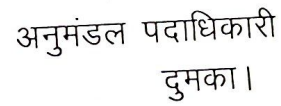 अनुमंडल पदाधिकारी
दुमका।